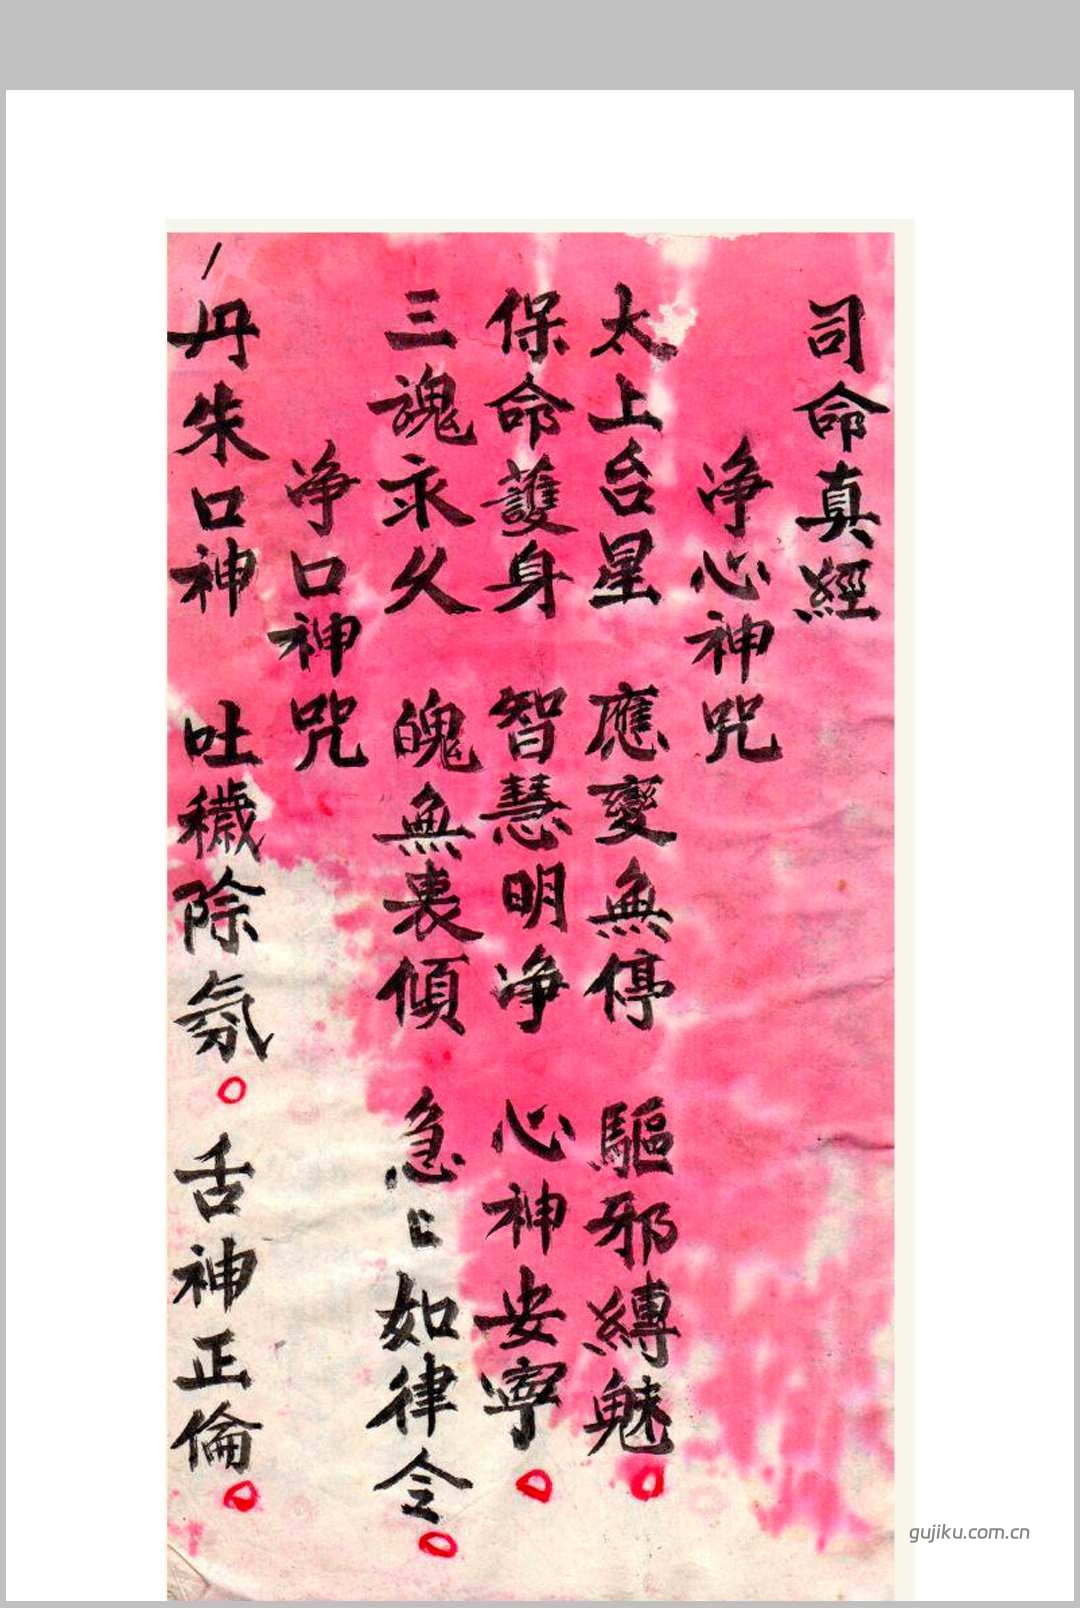 司命真經
净心神咒
太上台星 應變無停 驅邪縛魅。
保命護身 智慧明净 心神安寧。
三魂永久 魄無喪傾 急々如律令。
净口神咒
丹朱口神 吐穢除氛。舌神正倫。
gujiku.com.cn